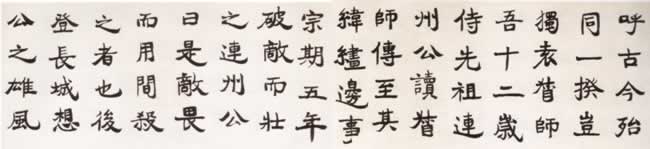 呼古今殆
同一揆豈
獨袁督師
吾十二歲
侍先祖連
州公讀督
師傳至其
緯繣邊事
宗期五年
破敵而壯
之連州公
曰是敵畏
而用間殺
之者也後
登長城想
公之雄風